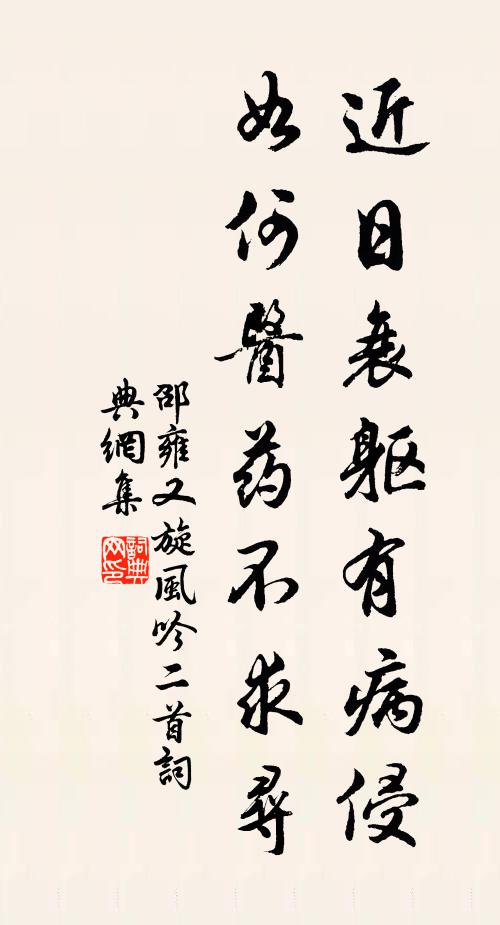 近日衰躯有病侵
如何醫药不求尋
邵雍又旋風吟二首詞
典網集
詞典网印